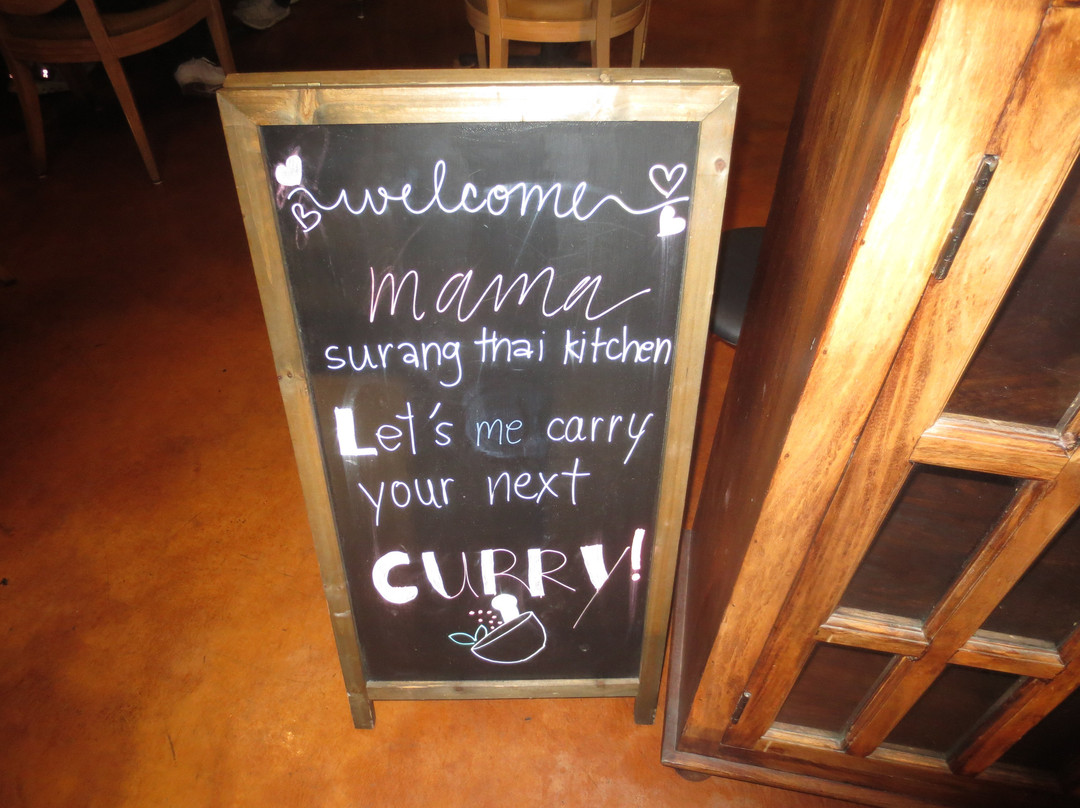 welcome
mama
surang thai kitchen
Let's me carry
your next
CURRY!